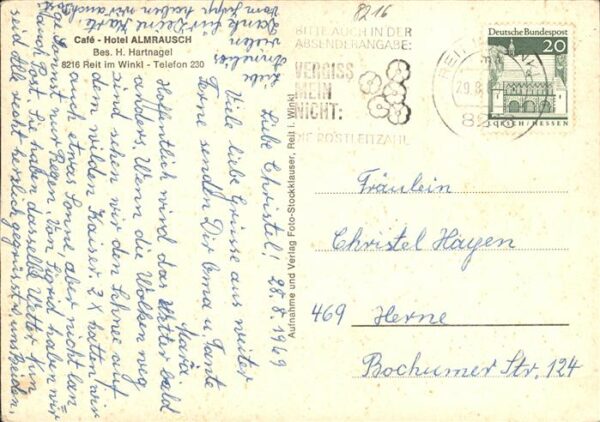 Café - Hotel ALMRAUSCH
Bes. H. Hartnagel
8216 Reit im Winkl - Telefon 230
8216
BITTE AUCH IN DER
ABSENDERANGABE:
VERGISS
MEIN
NICHT:
DIE POSTLEITZAHL
Deutsche Bundespost
20
LORSCH/HESSEN
29.8.
8216
Aufnahme und Verlag Foto-Stockklauser, Reit i. Winkl
Liebe Christel! 28.8.1969
Viele liebe Grüsse aus weiter
Ferne senden Dir Oma u. Tante
Maria
Hoffentlich wird das Wetter bald
anders. Wenn die Wolken weg
sind sehen wir den Schnee auf
dem wilden Kaiser. 2 X hatten wir
auch etwas Sonne, aber nicht lan=
ge, sonst nur Regen. Von Sigrid haben wir
Post. Sie haben dasselbe Wetter
seid Alle recht herzlich gegrüsst
Liebe
vielen
Dank für Deine Karte
haben wir auch
Fräulein
Christel Hayen
469 Herne
Bochumer Str. 124